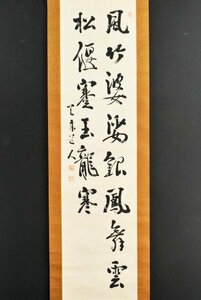 風竹婆娑銀鳳舞雲
松偃蹇玉龍寒